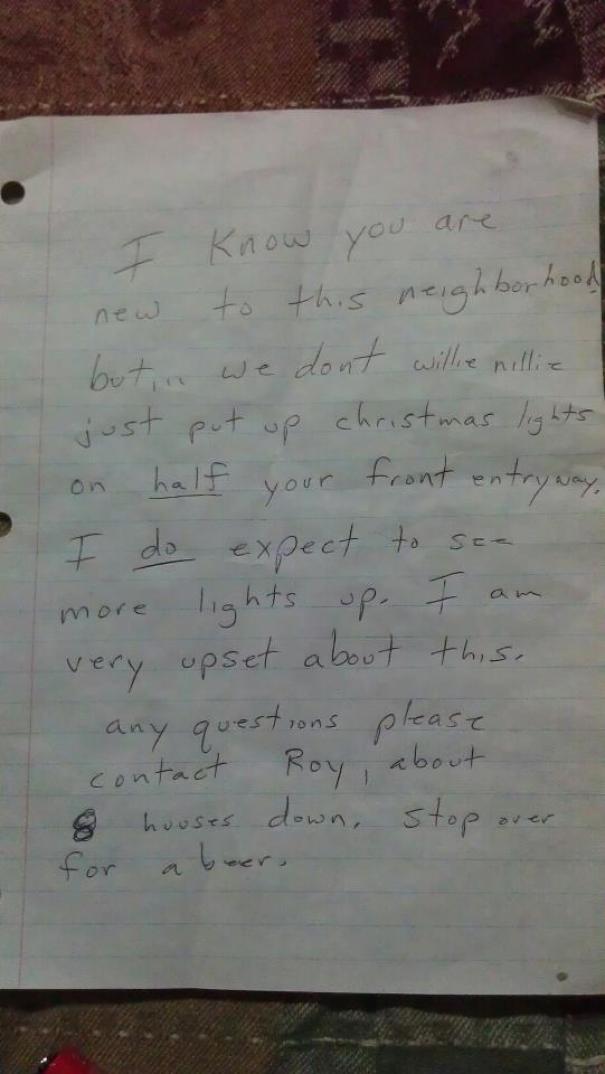 I Know you are
new to this neighborhood
but... we dont willie nillie
just put up christmas lights
on half your front entryway.
I do expect to see
more lights up. I am
very upset about this.
any questions please
contact Roy, about
8 houses down. Stop over
for a beer.